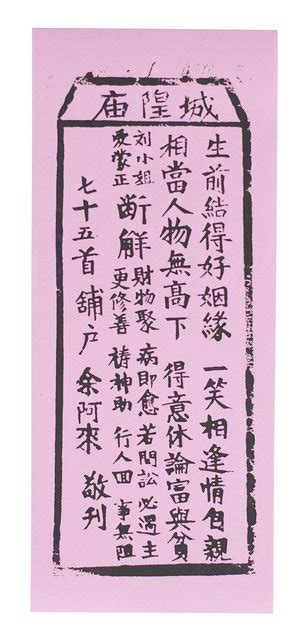 城隍庙
生前結得好姻緣 一笑相逢情自親
相當人物無高下 得意休論富與貧
刘小姐
愛蒙正
断解
財物聚 病即愈 若問訟 必遇主
更修善 祷神助 行人回 事無阻
七十五首 舖户 余阿來 敬刊